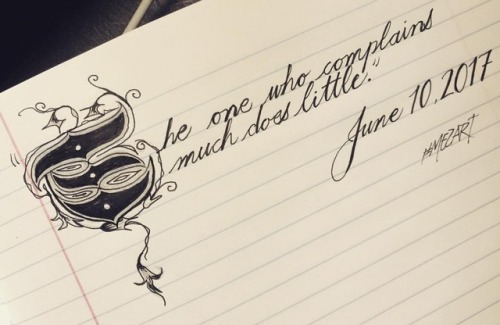 "The one who complains
much does little."
June 10, 2017
#SMEZART